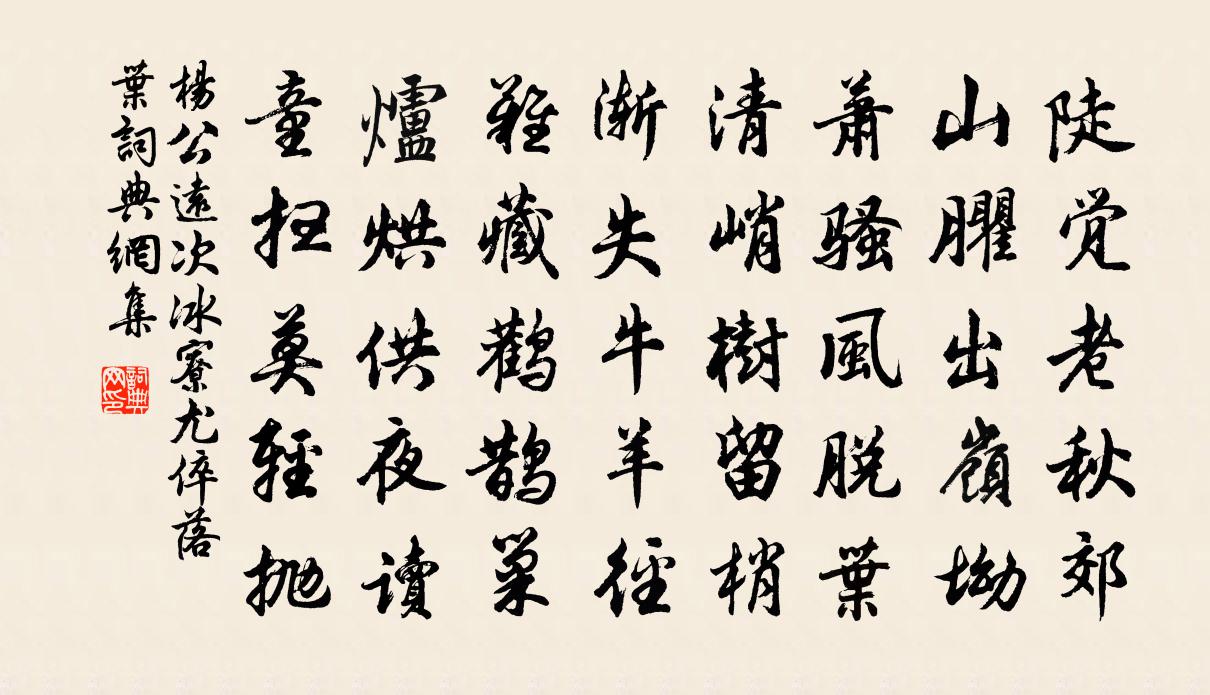 陡觉老秋郊
山臞出嶺坳
蕭骚風脱葉
清峭樹留梢
渐失牛羊徑
難藏鹳鹊巢
爐烘供夜讀
童扫莫輕抛
楊公遠次冰寮尤倅落
葉詞典網集
詞典
网印